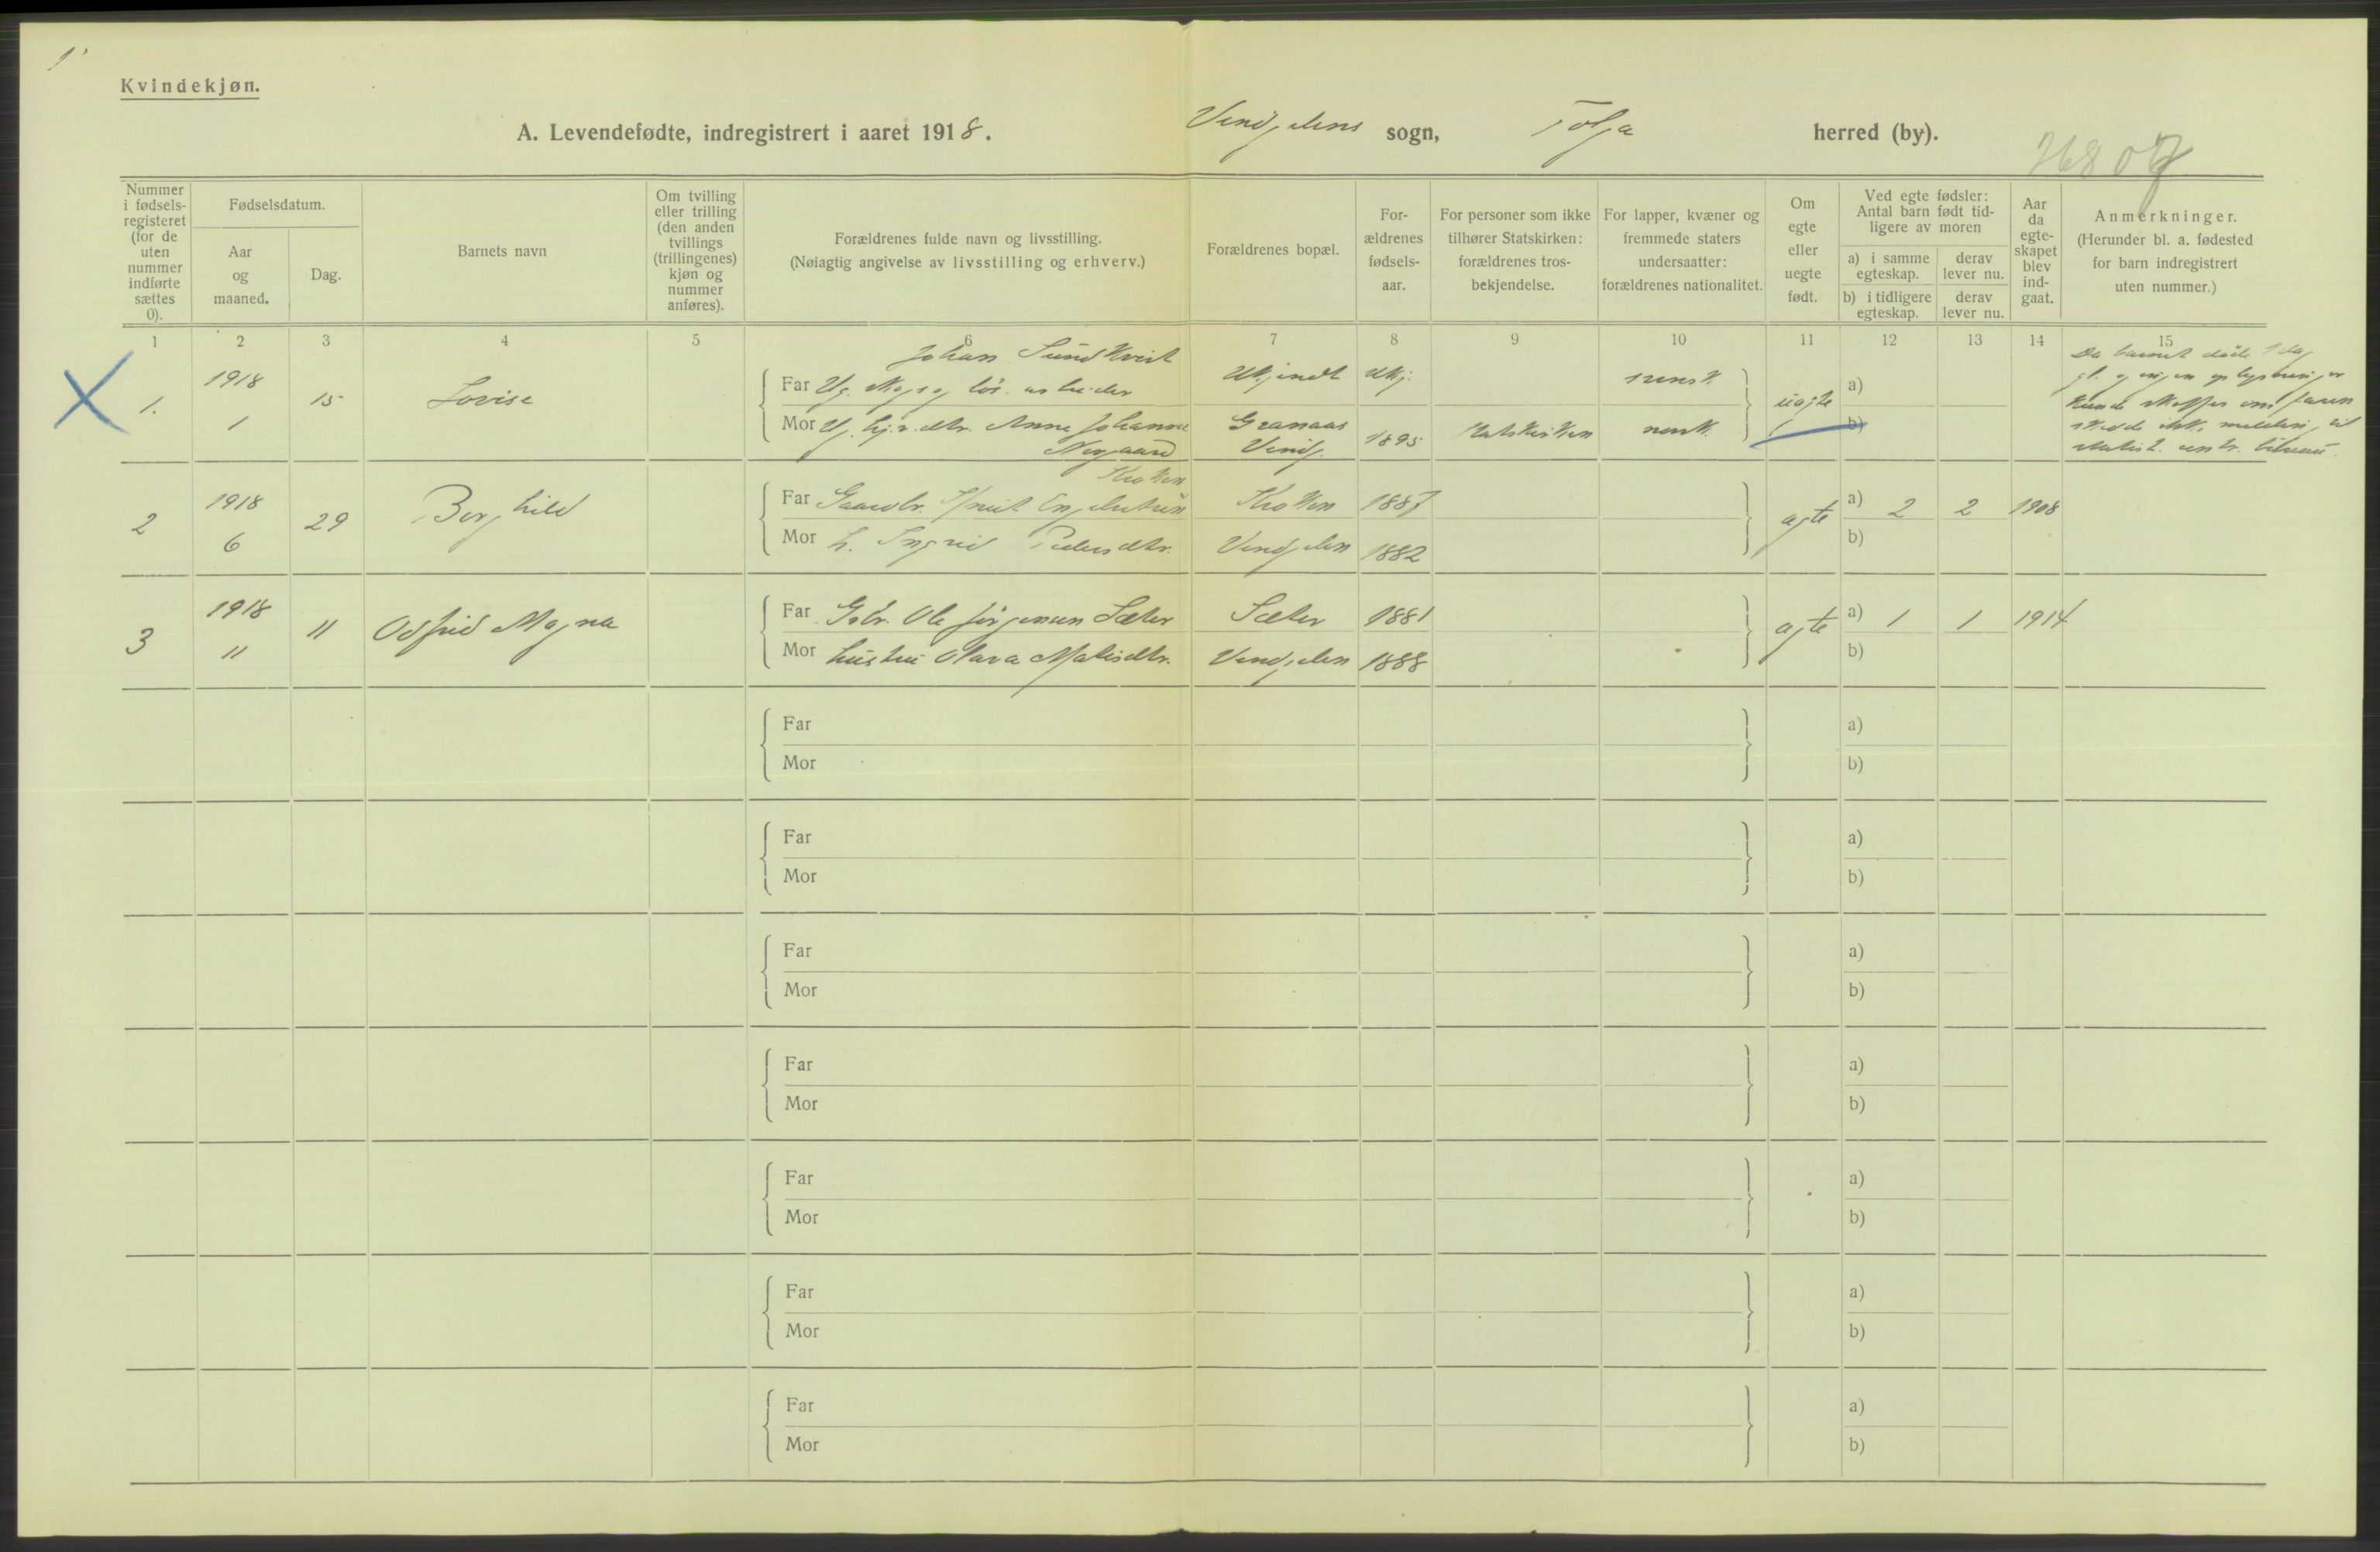 Kvindekjøn.
A. Levendefødte, indregistrert i aaret 1918. Vingelens sogn, Tolga herred (by).
Nummer i fødsels-registeret (for de uten nummer indførte sættes 0).
Fødselsdatum.
Aar og maaned.
Dag.
Barnets navn
Om tvilling eller trilling (den anden tvillings (trillingenes) kjøn og nummer anføres).
Forældrenes fulde navn og livsstilling.
(Nøiagtig angivelse av livsstilling og erhverv.)
Forældrenes bopæl.
For-ældrenes fødsels-aar.
For personer som ikke tilhører Statskirken: forældrenes tros-bekjendelse.
For lapper, kvæner og fremmede staters undersaatter: forældrenes nationalitet.
Om egte eller uegte født.
Ved egte fødsler: Antal barn født tid-ligere av moren
a) i samme egteskap.
derav lever nu.
b) i tidligere egteskap.
derav lever nu.
Aar da egte-skapet blev ind-gaat.
Anmerkninger.
(Herunder bl. a. fødested for barn indregistrert uten nummer.)
1 2 3 4 5 6 7 8 9 10 11 12 13 14 15
1. 1918 1 15 Lovise
Johan Sundkvist
Far Ug. arbeider Ukjendt Ukj. svensk uegte a)
Mor Anna Johanne Nygaard Ving. 1895 Statskirken norsk b)
Da barnet døde 1 dag
2 1918 6 29 Borghild
Far Gaardbr. Kroken 1887 egte a) 2 2 1908
Mor h. Ingrid Pedersdtr. Vingelen 1882 b)
3 1918 11 11 Odfrid Magna
Far Gbr. Ole Jørgensen Sæter Sæter 1881 egte a) 1 1 1914
Mor hustru Olava Vingelen 1888 b)
Far a)
Mor b)
Far a)
Mor b)
Far a)
Mor b)
Far a)
Mor b)
Far a)
Mor b)
Far a)
Mor b)
Far a)
Mor b)